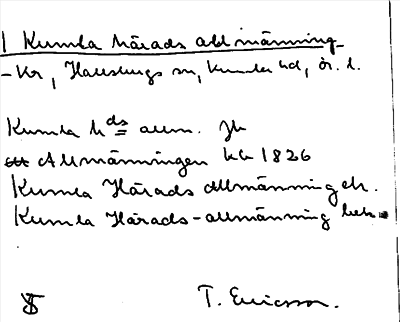 1 Kumla härads allmänning
- kr, Hallsbergs sn, Kumla hd, ör. l.
Kumla hds allm. jb
Allmänningen kk 1826
Kumla Härads Allmänning ek.
Kumla Härads-allmänning bebr
T. Ericsson.